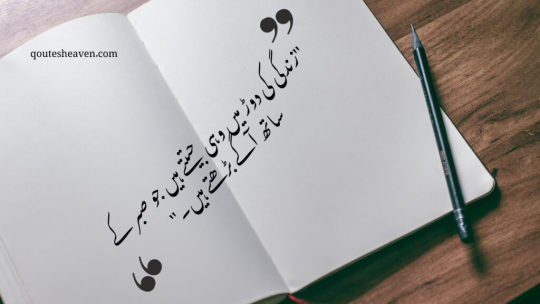 qoutesheaven.com
"زندگی کی دوڑ میں وہی جیتتے ہیں جو صبر کے
ساتھ آگے بڑھتے ہیں۔"